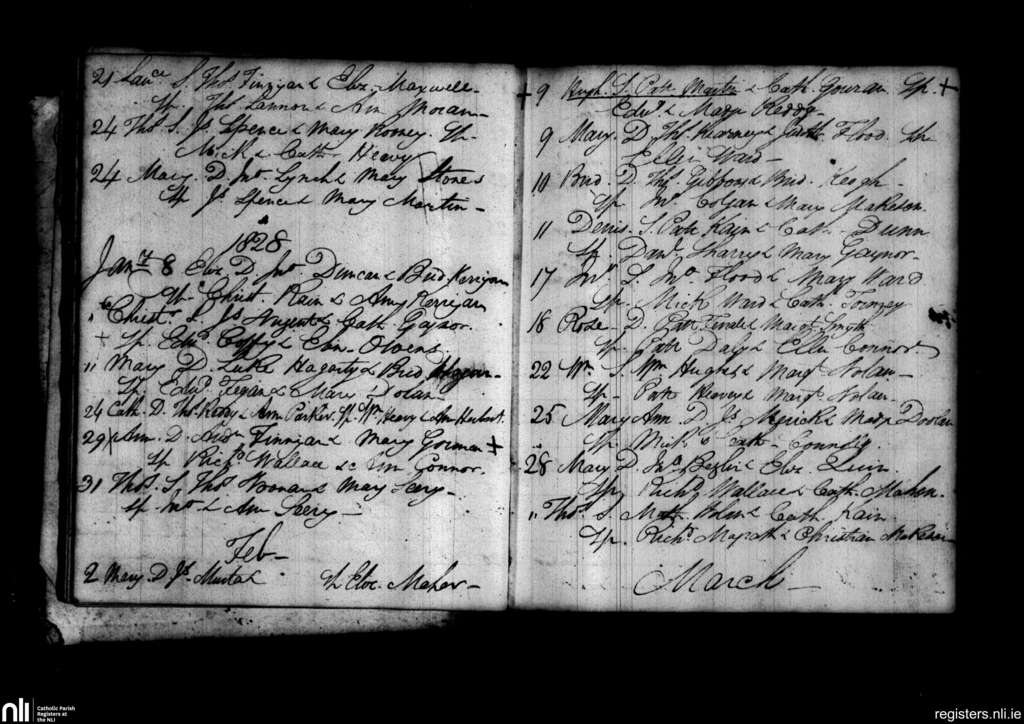 21 Lau.ce S. Thos Finnigan & Eliz. Maxwell
Sp Thos Lannon & Ann Moran
24 Thos S. Js Spence & Mary Romey. Sp.
Mick & Cath. Heavy
24 Mary. D. Jno Lynch & Mary Stones
Sp Js Spence & Mary Martin
1828
Jany 8 Eliz. D. Jno Duncan & Brid. Kerrigan
Sp Christ. Kain & Amy Kerrigan
" Christr S. Js Nugent & Cath. Gaynor.
+ Sp. Edwd Coffy & Owens
" Mary D. Luke Hagarty & Brid
Sp. Edwd Fegan & Mary Dolan
24 Cath. D. Thos & Ann Parker. Sp. Wm Heavy & Ann Herbert
29 Ann. D. Finnigan & Mary Gorman +
Sp Richd Wallace & Ann Connor.
31 Thos S. Thos & Mary Seery
Sp. Jno & Ann Seery
Feb
2 Mary. D. Js Murtal Sp Eliz. Maher
+ 9 Hugh. S. Patt Martin & Cath. Gouran Sp. +
Edwd & Mary Reddy
9 Mary. D. Thos Kearney & Judith Flood. Sp
Ellen Ward
10 Brid. D. Thos Gibbons & Brid. Keogh
Sp Jno Colgan & Mary
11 Denis. S. Patt Kain & Cath. Dunn
Sp. Danl Sharry & Mary Gaynor.
17 Jno S. Jno Flood & Mary Ward
Sp. Mick Ward & Cath.
18 Rose D. Patt & Margt Smyth
Sp. Patt Daly & Ellen Connor.
22 Wm S. Wm Hughes & Margt Nolan
Sp Patt Heavy & Margt Nolan.
25 Mary Ann D. Js & Mary Doolan
" Sp. Mick & Cath.
28 Mary D. & Eliz. Quin
Sp. Richd Wallace & Cath. Mahon.
" Thos S. Matt & Cath. Kain
Sp. Richd & Christian
March
nli Catholic Parish
Registers at
the NLI
registers.nli.ie